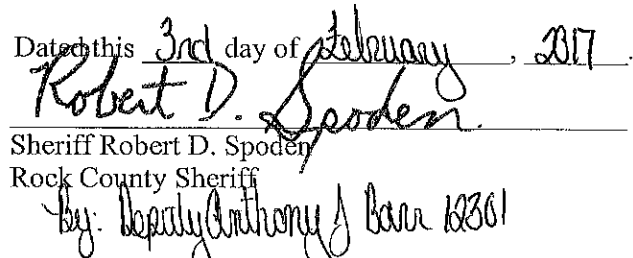 Dated this 3rd day of February, 2017.
Robert D. Spoden.
Sheriff Robert D. Spoden
Rock County Sheriff
By: Deputy Anthony J Barr 12301